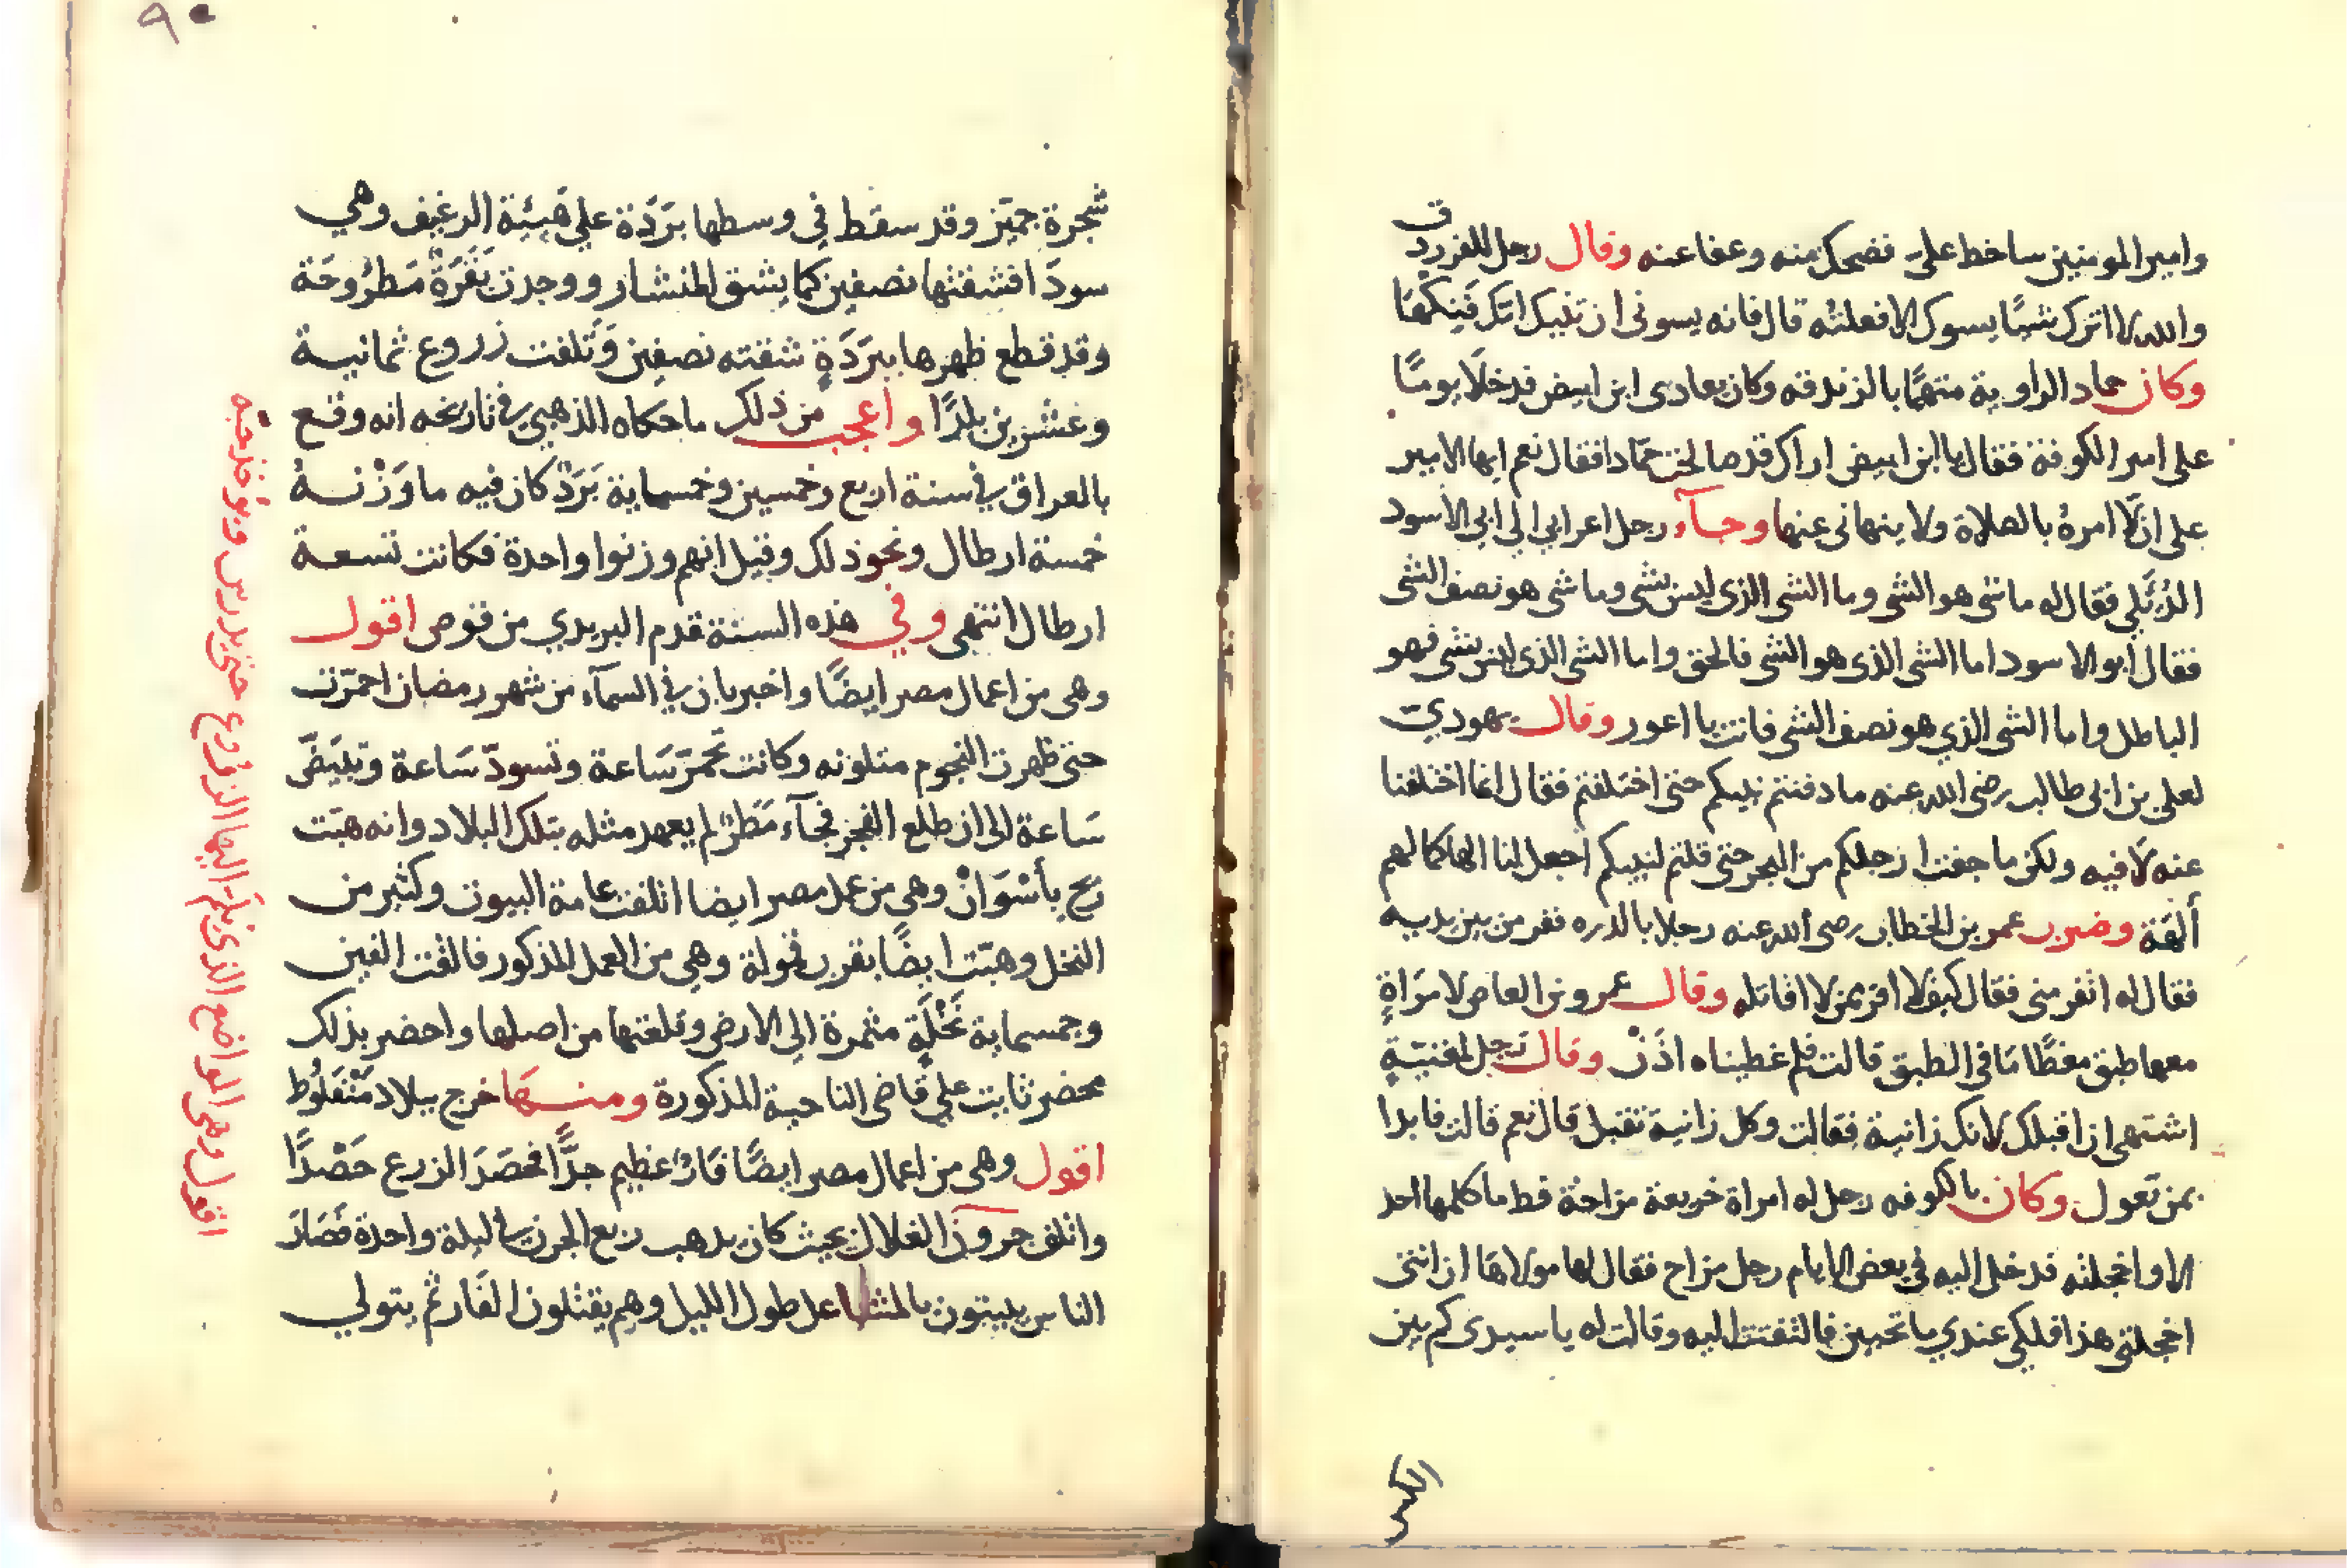 وامير المومنين ساخط علىّ فضحك منه وعفا عنه وقال رجل للفرزدق
والله لا اترك شيًا يسوك الا فعلته قال فانه يسونى ان تنيك امك فَنِكْهَا
وكان حماد الراوية متهمًا بالزندقه وكان يعادى ابن ابيض فدخلا يومًا
على امير الكوفة فقال يا ابن ابيض اراك قد صالحت حمّادا فقال نعم ايها الامير
على ان لا امرهُ بالصلاة ولا ينهانى عنها وجآء رجل اعرابي الي ابي الاسود
الدُئَلي فقال له ما شى هو الشي وما الشي الذي ليس بشى وما شى هو نصف الشى
فقال ابو الاسود اما الشى الذى هو الشى فالحق واما الشى الذى ليس بشى فهو
الباطل واما الشى الذي هو نصف الشى فانت يا اعور وقال يهوديّ
لعلي بن ابى طالب رضى الله عنه ما دفنتم نبيكم حتى اختلفتم فقال انما اختلفنا
عنه لا فيه ولكن ما جفت ارجلكم من البحر حتى قلتم لنبيكم اجعل لنا الها كما لهم
ألهَة وضرب عمر بن الخطاب رضى الله عنه رجلا بالدره ففر من بين يديه
فقال له اتفر منى فقال كيف لا افر ممن لا اقاتله وقال عمرو بن العاص لامرَاةٍ
معها طبق مغطًّا مَا في الطبق قالت فلم غطيناه اذَنْ وقال رَجل لمغنيّةٍ
اشتهى ان اقبلك لانك زانية فقالت وكل زانية تقبل قال نعم قالت فابدا
بمن تعول وكان بالكوفه رجل له امراة خريعة مزاحة قط ما كلمها احد
الا واخجلته فدخل اليه في بعض الايام رجل مزاح فقال لها مولاها ان انتى
اخجلتى هذا فلكي عندي ما تحبين فالتفتت اليه وقالت له يا سيدى كم بين
٩٠
شجرة جميّز وقد سقط في وسطها برَدَة علي هَيئة الرغيف وهي
سودَا فشقتها نصفين كما يشق المنشار ووجدت بَقَرَةٌ مَطرُوحَة
وقد قطع ظهرها ببرَدَةٍ شقته نصفين وَتَلفت زروع ثمانية
وعشرين بلدًا واعجب من ذلك ما حكاه الذهبي في تاريخه انه وقع
بالعراق في سنة اربع وخمسين وخمسماية بَرَدٌ كان فيه ما وَزْنهُ
خمسة ارطال ونحو ذلك وقيل انهم وزنوا واحدة فكانت تسعة
ارطال انتهى وفي هذه السنة قدم البريدي من قوص اقول
وهى من اعمال مصر ايضًا واخبر بان في السمآء من شهور رمضان احمرّت
حتى ظهرت النجوم متلونه وكانت تَحمرّ سَاعة وتسودّ سَاعة وتبيَضّ
سَاعة الى ان طلع الفجر فجآء مَطرٌ لم يعهد مثله بتلك البلاد وانه هبّت
ريح بأسْوَانْ وهى من عمل مصر ايضا اتلفت عامة البيوت وكثير من
النخل وهبّت ايضًا بقرب قمولة وهى من العمل المذكور فالقت الفين
وخمسماية نَخْلَةٍ مثمرة الى الارض وقلعتها من اصلها واحضر بذلك
محضر ثابت علي قاضى الناحية المذكورة ومنهَا خرج ببلاد مَنْفَلُوط
اقول وهى من اعمال مصر ايضًا فَارٌ عظيم جدًّا فحصَدَ الزرع حَصْدًا
واتلف جرون الغلال بحيث كان يدهب ربع الجرن في ليلة واحدة فصَارَ
الناس يبيتون بالمشاعل طول الليل وهم يقتلون الفَار ثم يتولي